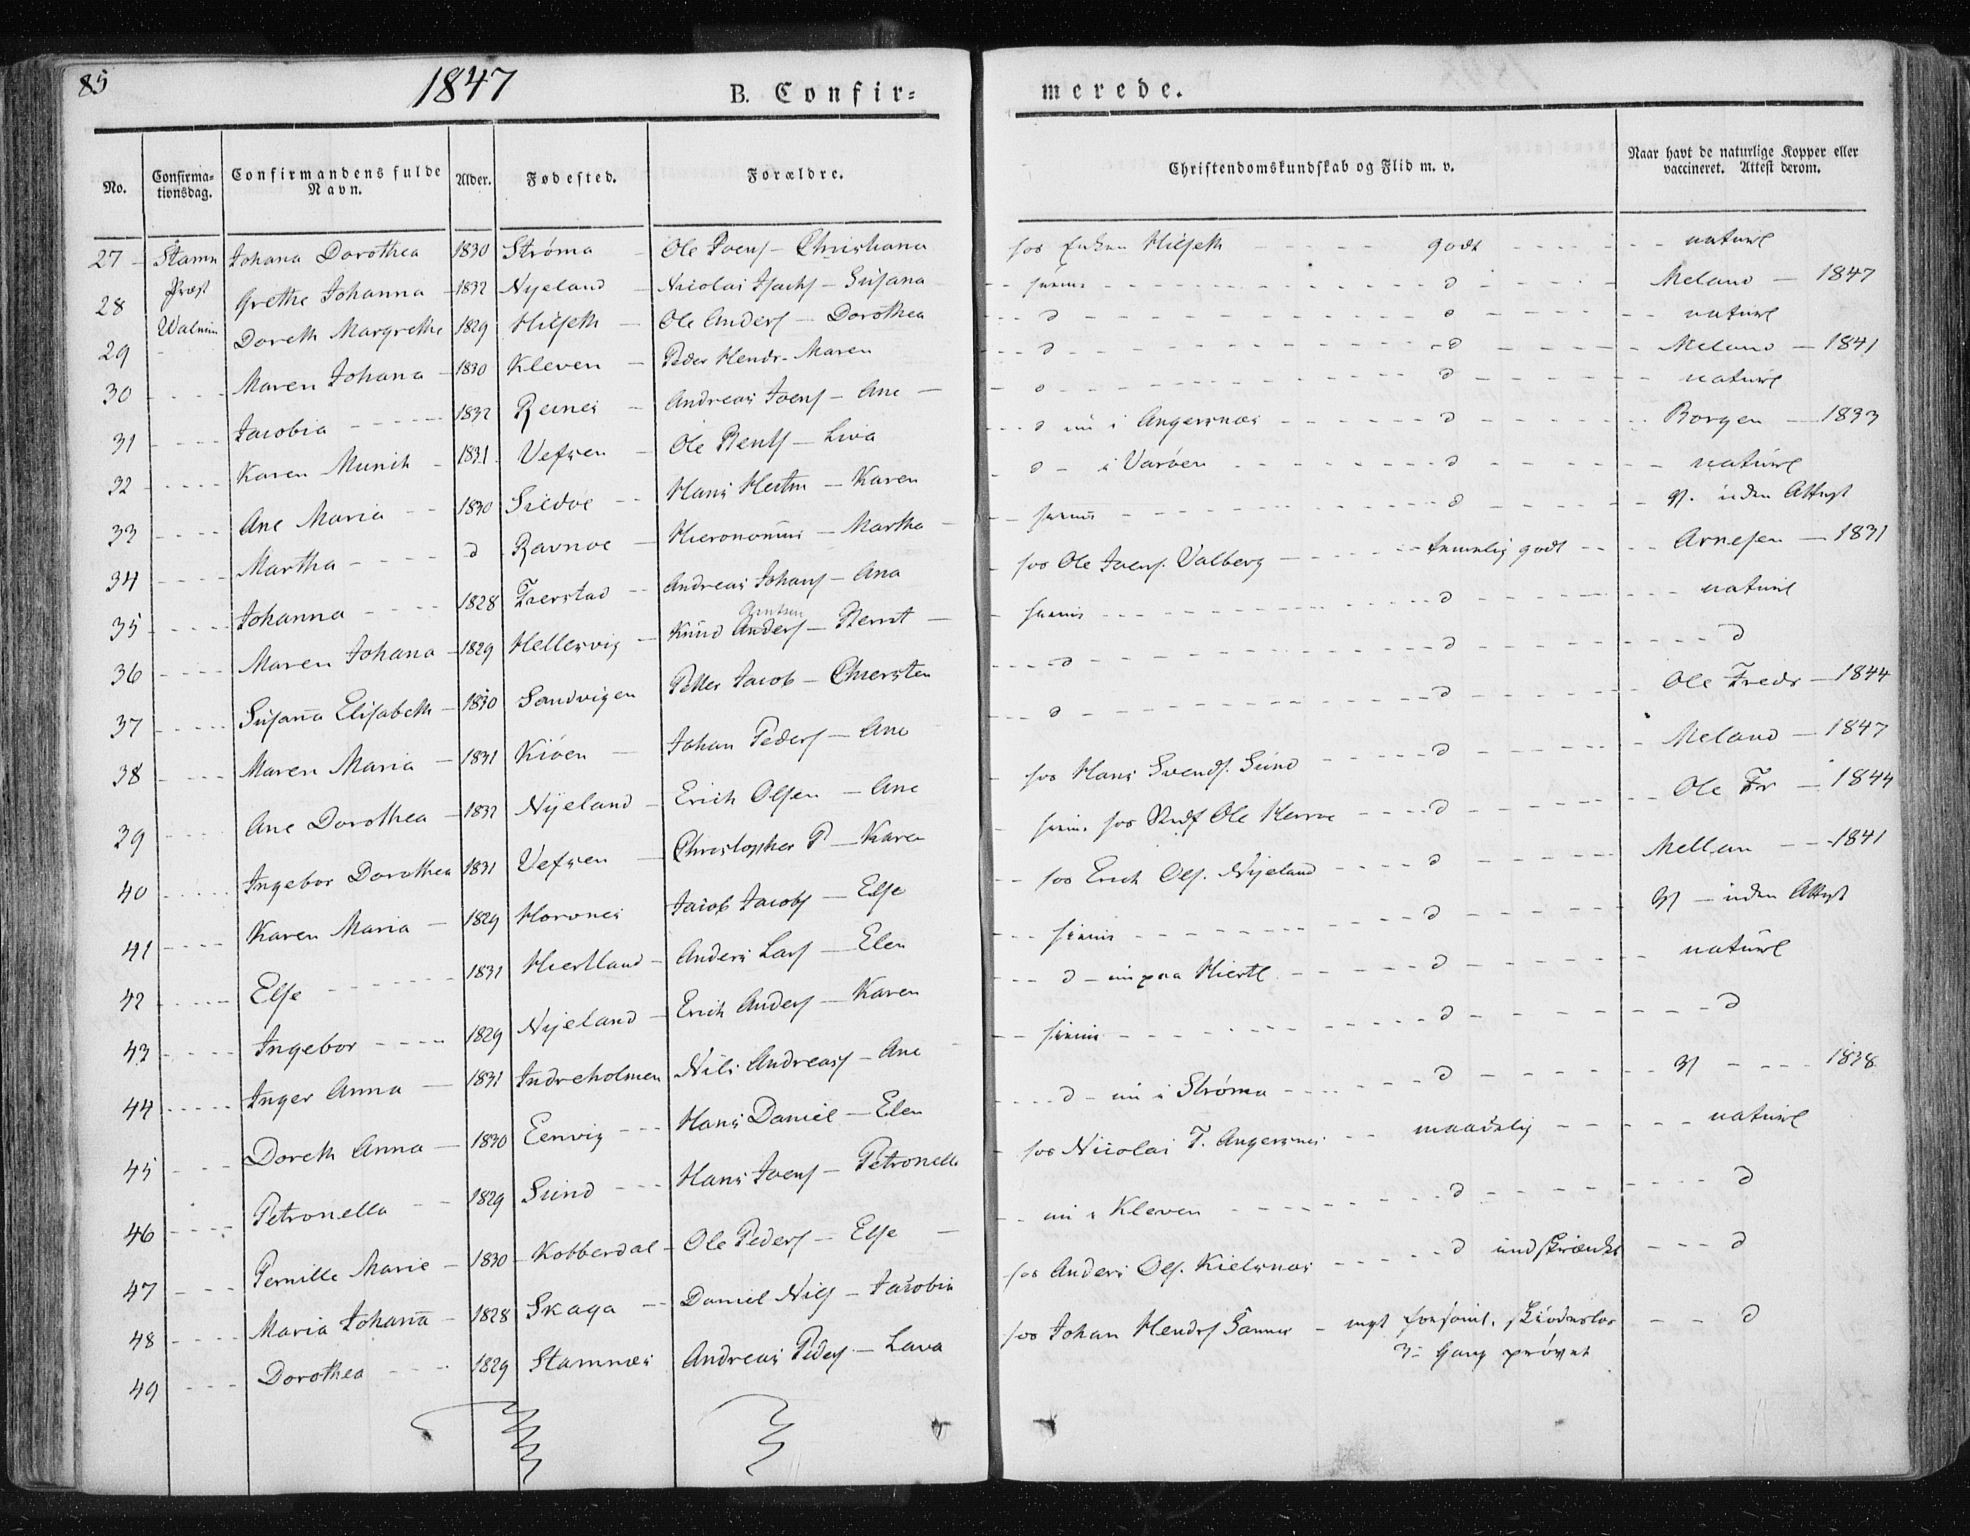 85
1847
B. Confir-
merede.
No. Confirma-tionsdag. Confirmandens fulde Navn. Alder. Fødested. Forældre. Christendomskundskab og Flid m. v. Naar havt de naturlige Kopper eller vaccineret. Attest derom.
27 - Stamn Johana Dorothea 1830 Strøma - Ole Ivers - Christiana hos Hilseth - - - godt - - - naturl
28 Præst Grethe Johanna - 1832 Nyeland - Nicolai Isachs - Susana - - - d - - - Meland - 1847
29 Doreth Margrethe 1829 Hilseth - Ole Anders - Dorothea - - d - - - d - - - naturl
30 - - - Maren Johana - 1830 Kleven - Peder Hendr - Maren - - d - - - d - - - Meland - 1841
31 - - - Jacobia - - - 1832 Reines - Andreas Ivers - Ane - - - d - - - d - - - naturl
32 - - - Karen Munch - 1831 Vefsen - Ole Bents - Liva - - d nu i Angersnæs - - - d - - - Borgen - 1833
33 - - - Ane Maria - - 1830 Sildøe - - Hans - Karen - d - i Varöen - - - d - - - naturl
34 - - - Martha - - - d Ravnøe - Hieronomüs - Martha - - - - - d - - - uden Attest
35 - - - Johanna - - - 1828 Tverstad - - Andreas Johans - Ana - hos Ole Ivers. Valberg - - - temelig godt - - - Arnesen - 1831
36 - - - Maren Johana - 1829 Hellesvig - Knud Anders - Bernt - - - - d - - - naturl
37 - - - Susaña Elisabeth - 1830 Sandvigen Petter Jacob - Chiersten - - - d - - - d - - - d
38 - - - Maren Maria - 1831 Kiöen - Johan Peders - Ane - - d - - - d - - - Ole Fredr - 1844
39 - - - Ane Dorothea - 1832 Nyeland - Erich Olsen - Ane - hos Hans Svends. Sund - - - d - - - Meland - 1847
40 - - - Ingebor Dorothea 1831 Vefsen - Christopher P - Karen - hos Ole - - - d - - - Ole Fr - 1844
41 - - - Karen Maria - 1829 Horvnes Jacob Jacobs - Else - - hos Erich Ols. Nyeland - - - d - - - Mellan - - 1841
42 - - - Else - - - 1831 Hiertland - Anders Lars - Elen - - - - - d - - - uden Attest
43 - - - Ingebor - - - 1829 Nyeland - Erich Anders - Karen - - d - nu paa Hiertl - - - d - - - naturl
44 - - - Inger Anna - 1831 Indreholmen Nils Andreas - Ane - - - d - - - d
45 - - - Doreth Anna - 1830 Eenvig - - Hans Daniel - Elen - - - d - nu i Strøma - - - d - - - 1838
46 - - - Petronella - - 1829 Sund - - - Hans Ivers - Petronelle - hos Nicolai T. Angersnes - - maadelig - - - naturl
47 - - - Pernille Marie - 1830 - Kobberdal - Ole Peders - Else - - - nu i Kleven - - - d - - - d
48 - - - Maria Johaña - 1828 Skaga - - Daniel Nils - Jacobia hos Anders Ols. Kielsnæs - - - d indskrænkt - - - d
49 - - - Dorothea - - - 1829 Stamnæs Andreas Peders - Lava hos Johan Hendrs - meget forsömt, - - d
3- Gang prøvet